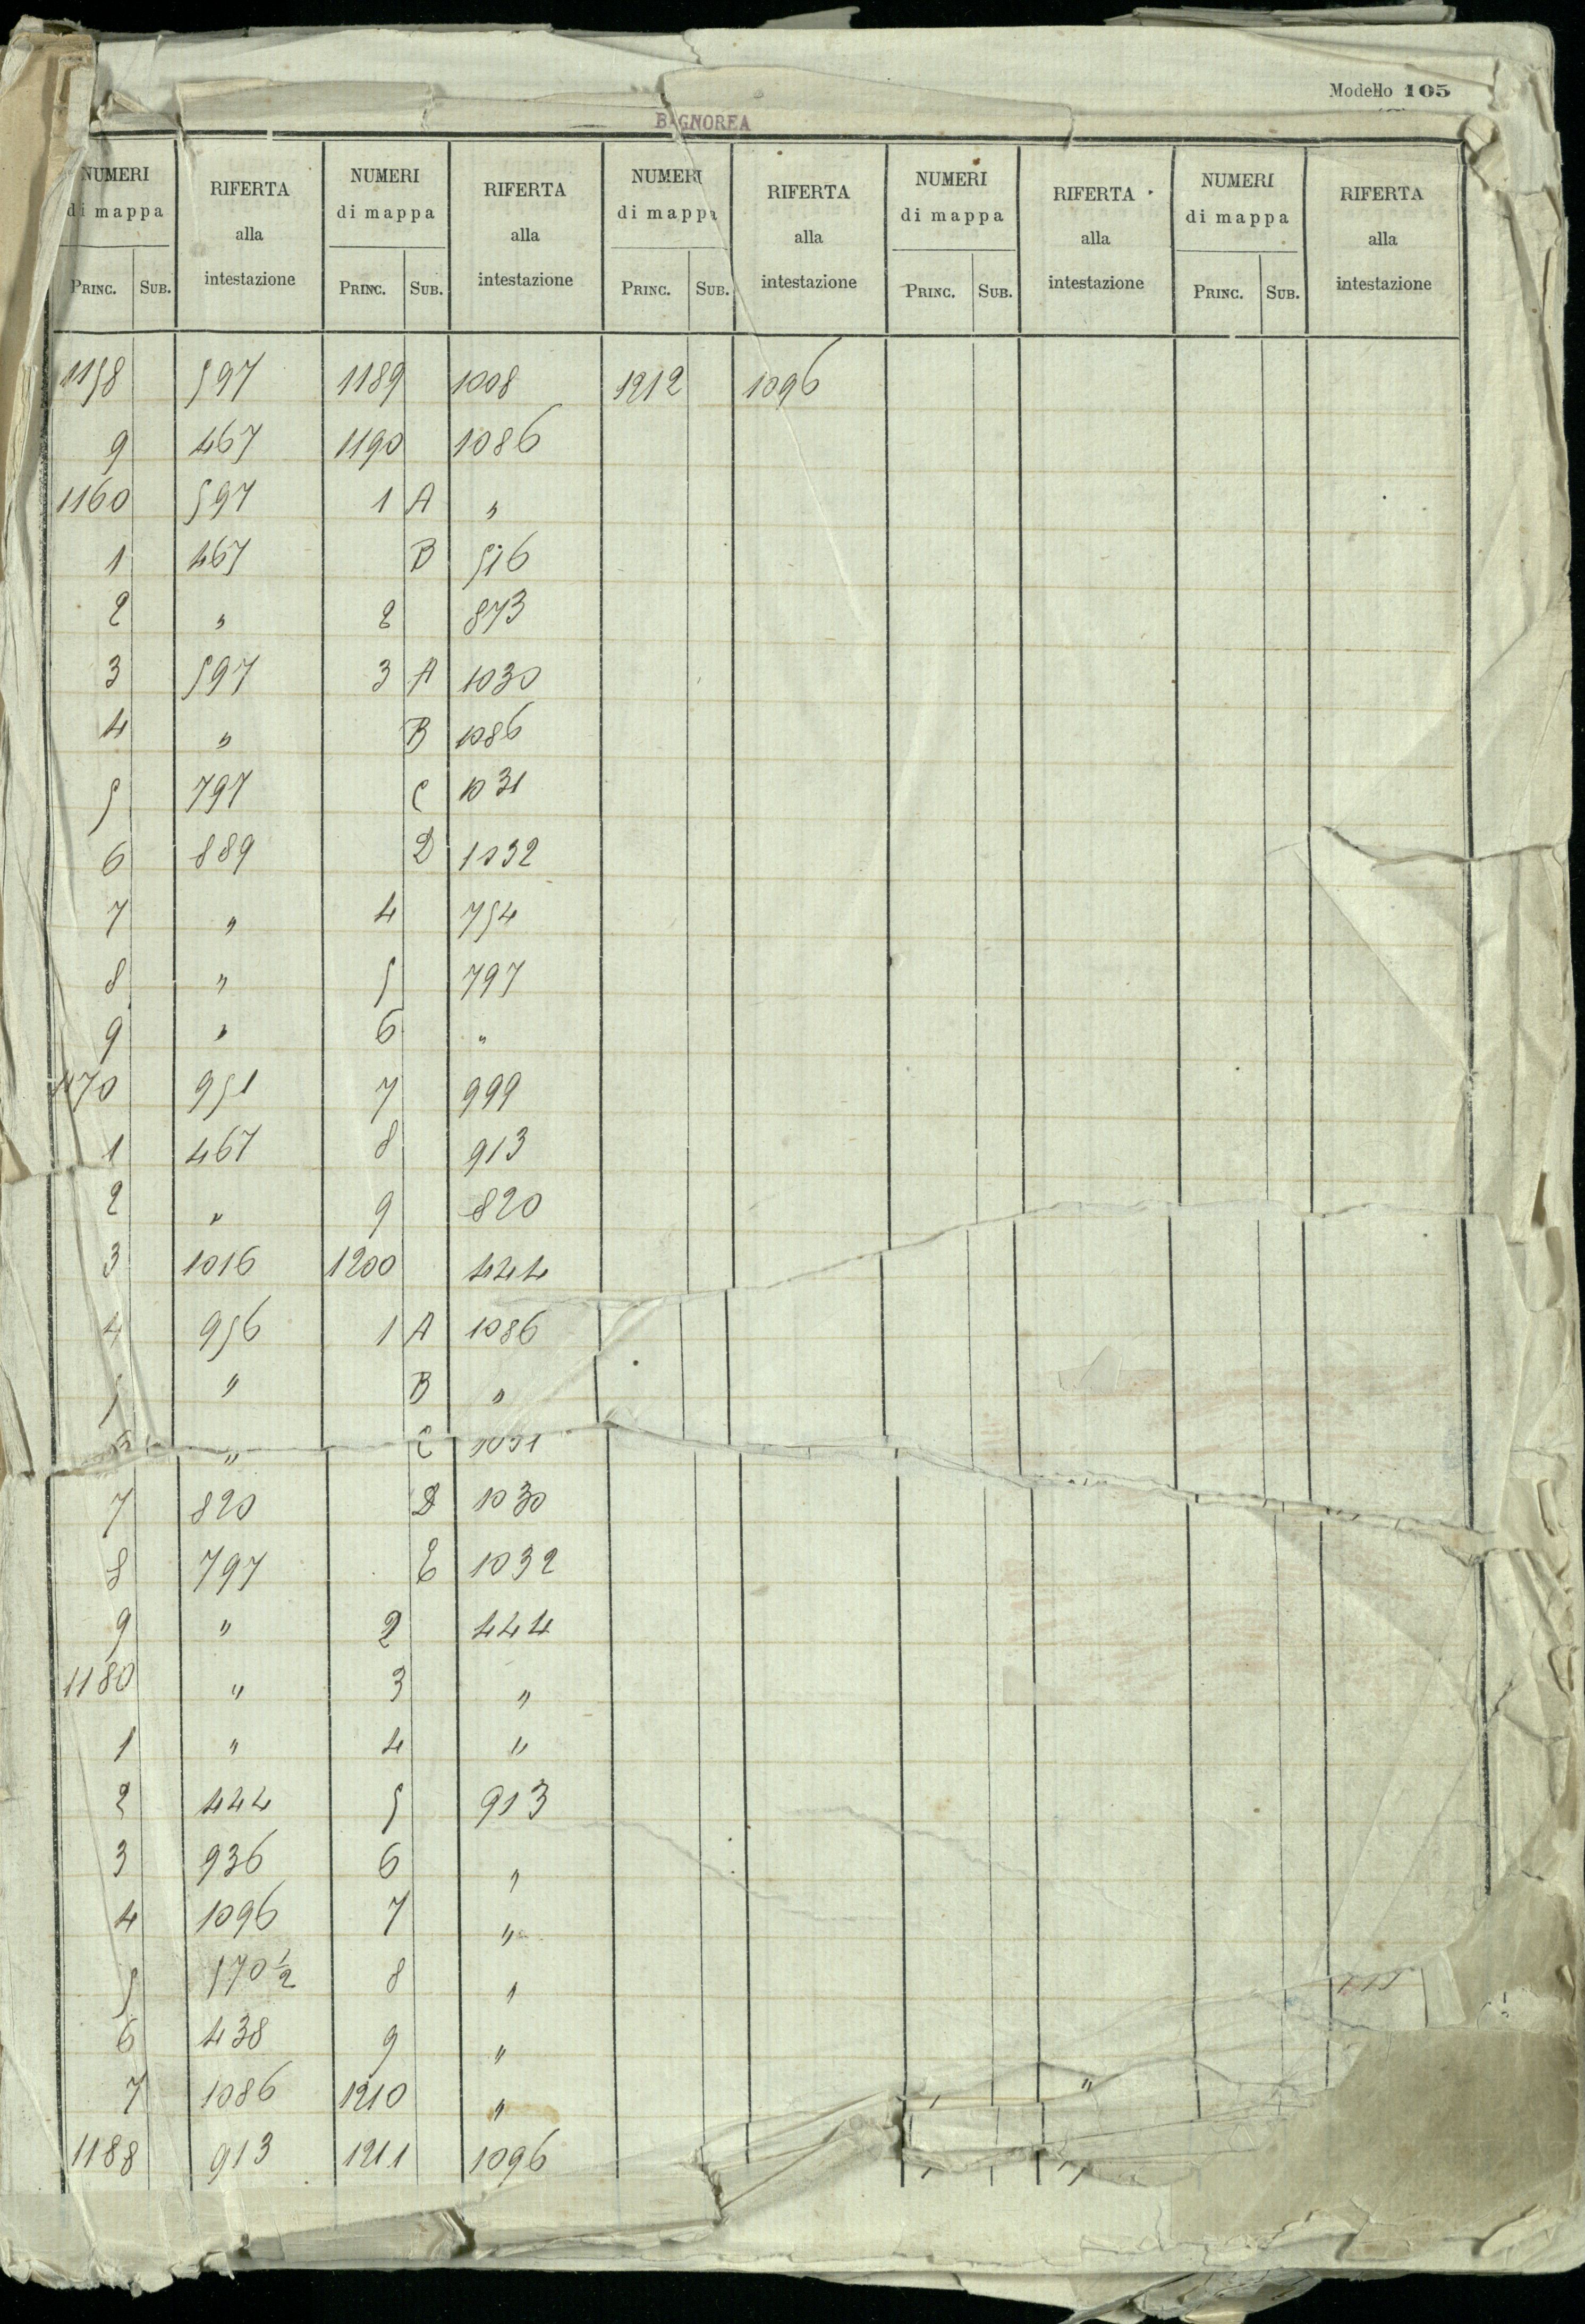 Modello 105
BAGNOREA
NUMERI di mappa RIFERTA alla intestazione NUMERI di mappa RIFERTA alla intestazione NUMERI di mappa RIFERTA alla intestazione NUMERI di mappa RIFERTA alla intestazione NUMERI di mappa RIFERTA alla intestazione
PRINC. SUB. PRINC. SUB. PRINC. SUB. PRINC. SUB. PRINC. SUB.
1158 597 1189 1008 1212 1096
9 467 1190 1086
1160 597 1 A "
1 467 B 516
2 " 2 873
3 597 3 A 1030
4 " B 1086
5 797 C 1031
6 889 D 1032
7 " 4 754
8 " 5 797
9 " 6 "
1170 951 7 999
1 467 8 913
2 " 9 820
3 1016 1200 444
4 956 1 A 1086
5 " B "
" C 1031
7 820 D 1030
8 797 E 1032
9 " 2 444
1180 " 3 "
1 " 4 "
2 444 5 913
3 936 6 "
4 1096 7 "
5 570 1/2 8 "
6 438 9 "
7 1086 1210 "
1188 913 1211 1096